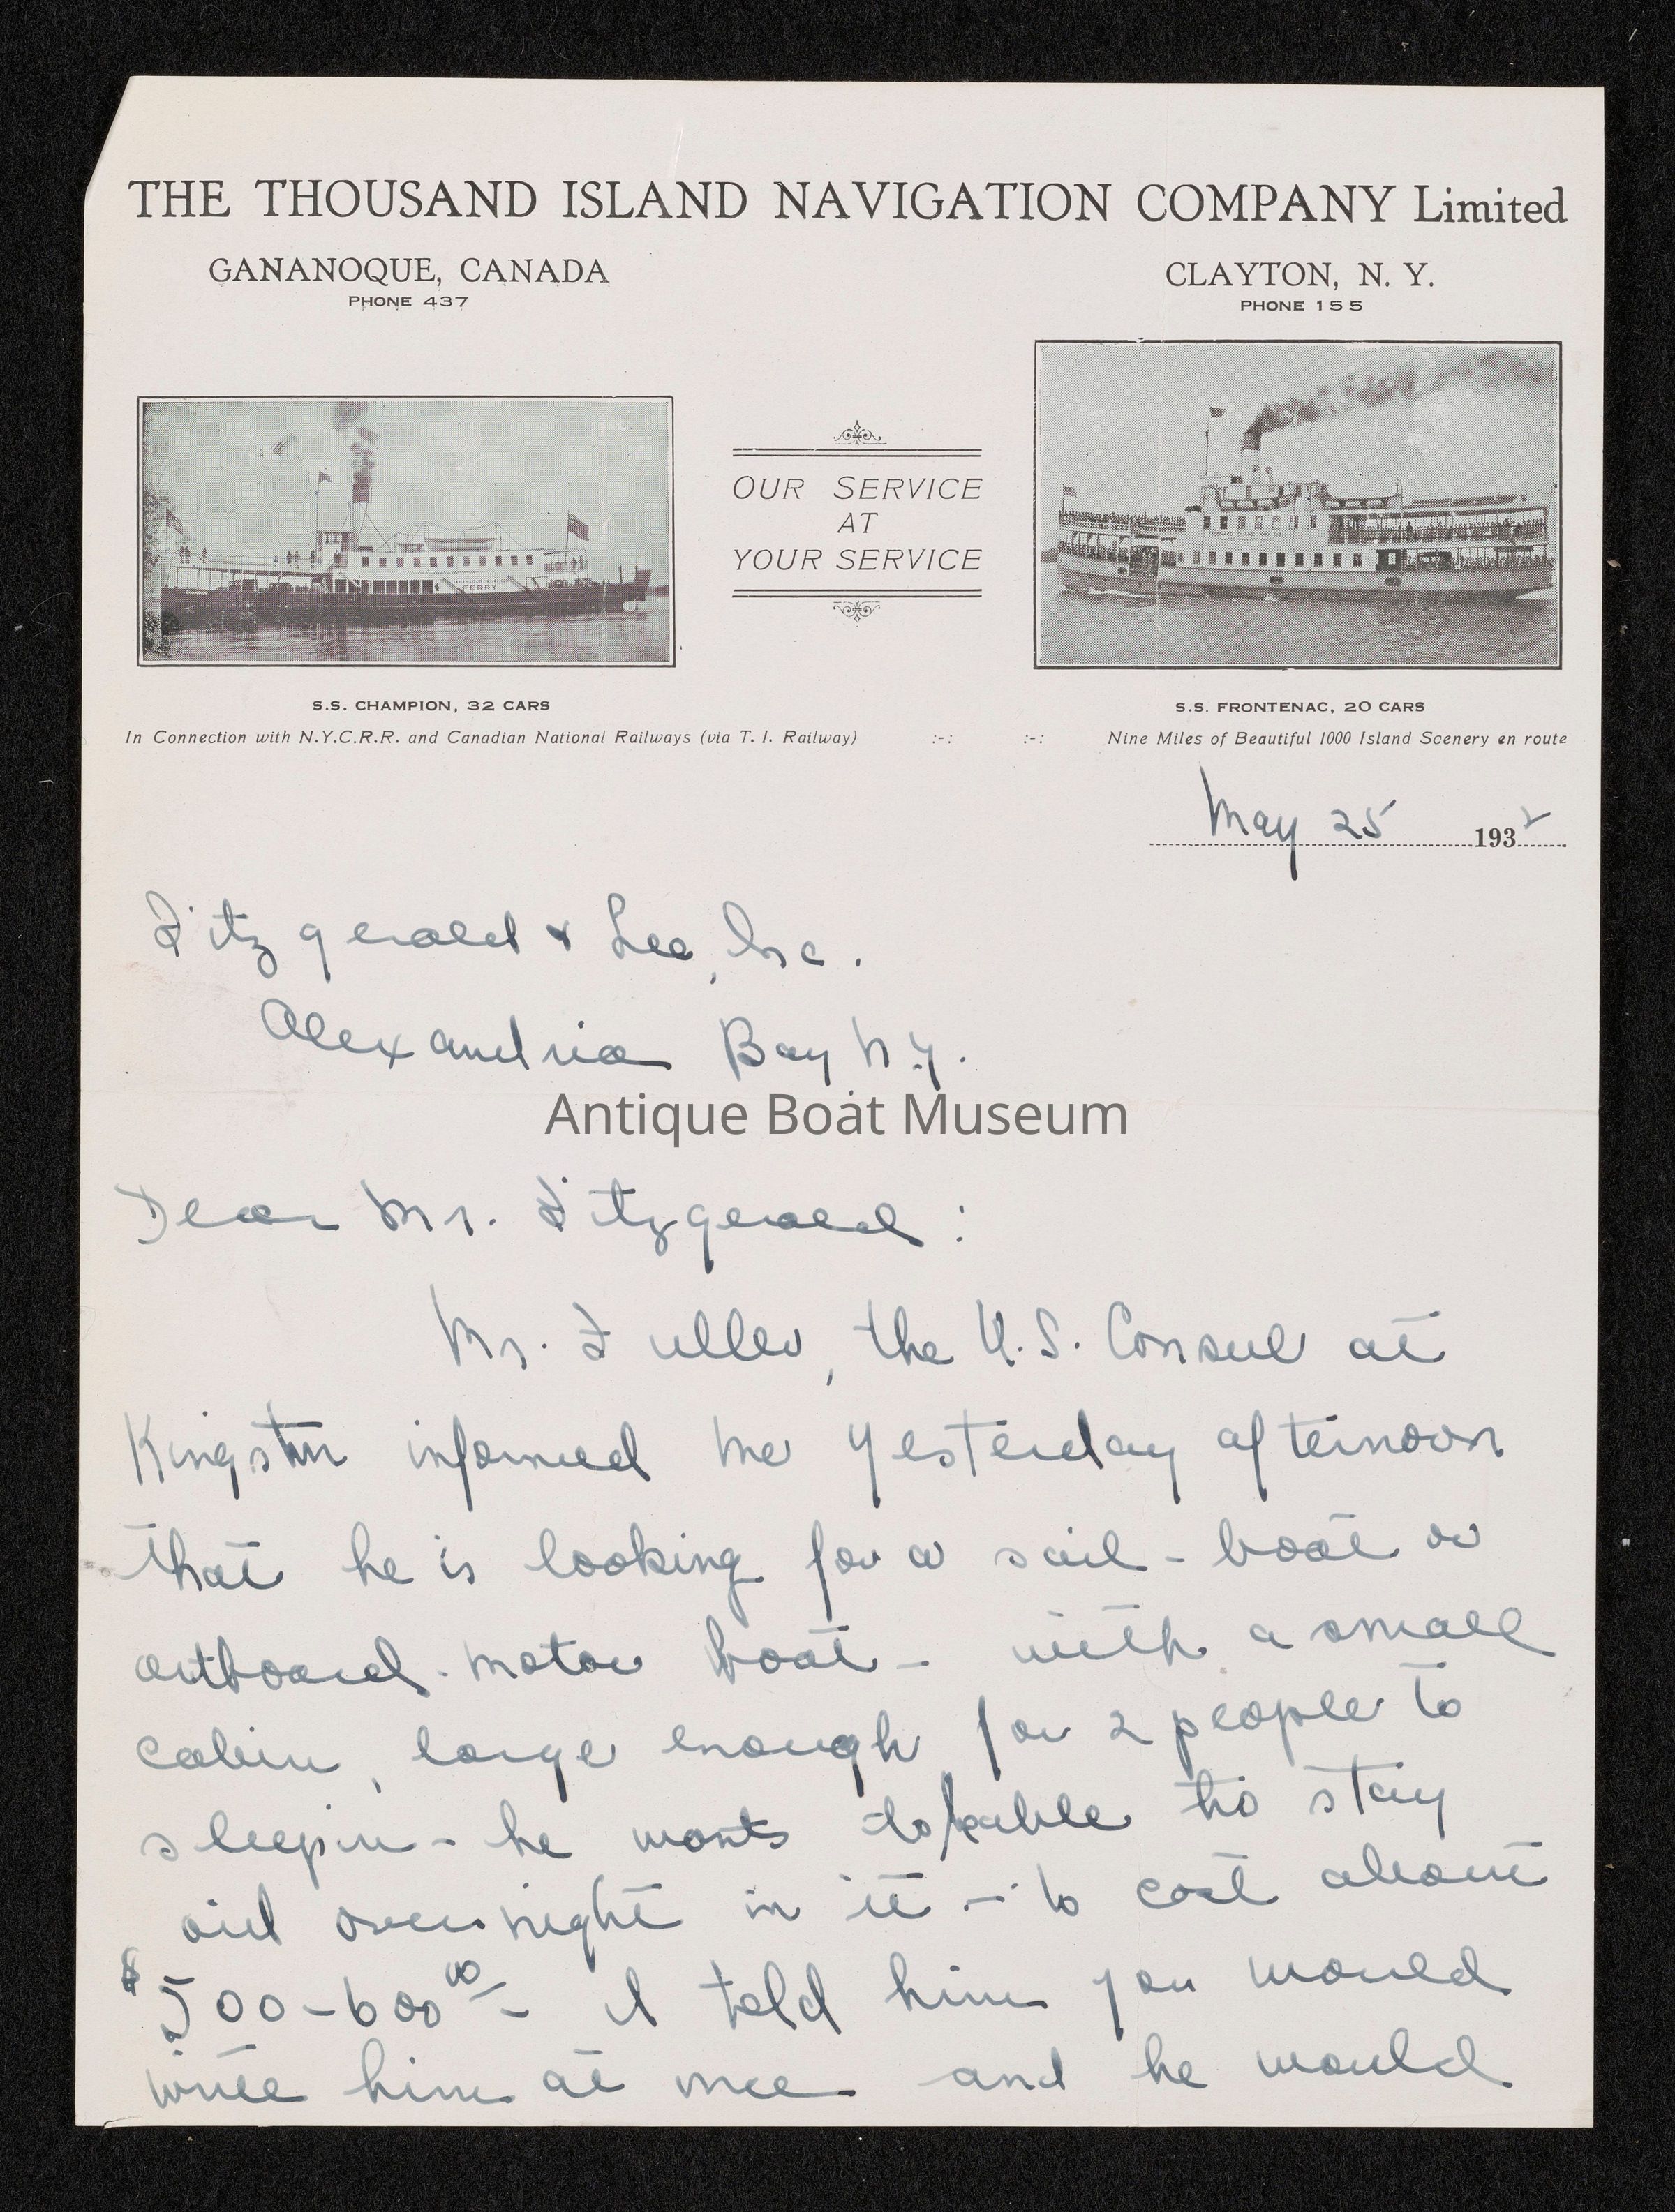 THE THOUSAND ISLAND NAVIGATION COMPANY Limited
GANANOQUE, CANADA
PHONE 437
CLAYTON, N. Y.
PHONE 155
OUR SERVICE
AT
YOUR SERVICE
FERRY
S.S. CHAMPION, 32 CARS
S.S. FRONTENAC, 20 CARS
In Connection with N.Y.C.R.R. and Canadian National Railways (via T. I. Railway) :-: :-: Nine Miles of Beautiful 1000 Island Scenery en route
May 25 1932
Fitzgerald & Lee, Inc.
Alexandria Bay N.Y.
Antique Boat Museum
Dear Mr. Fitzgerald:
Mr. Fuller, the U.S. Consul at
Kingston informed me yesterday afternoon
that he is looking for a sail-boat or
outboard-motor boat - with a small
cabin, large enough for 2 people to
sleep in - he wants to be able to stay
out over night in it - to cost about
$500-600.00 - I told him you would
write him at once and he would